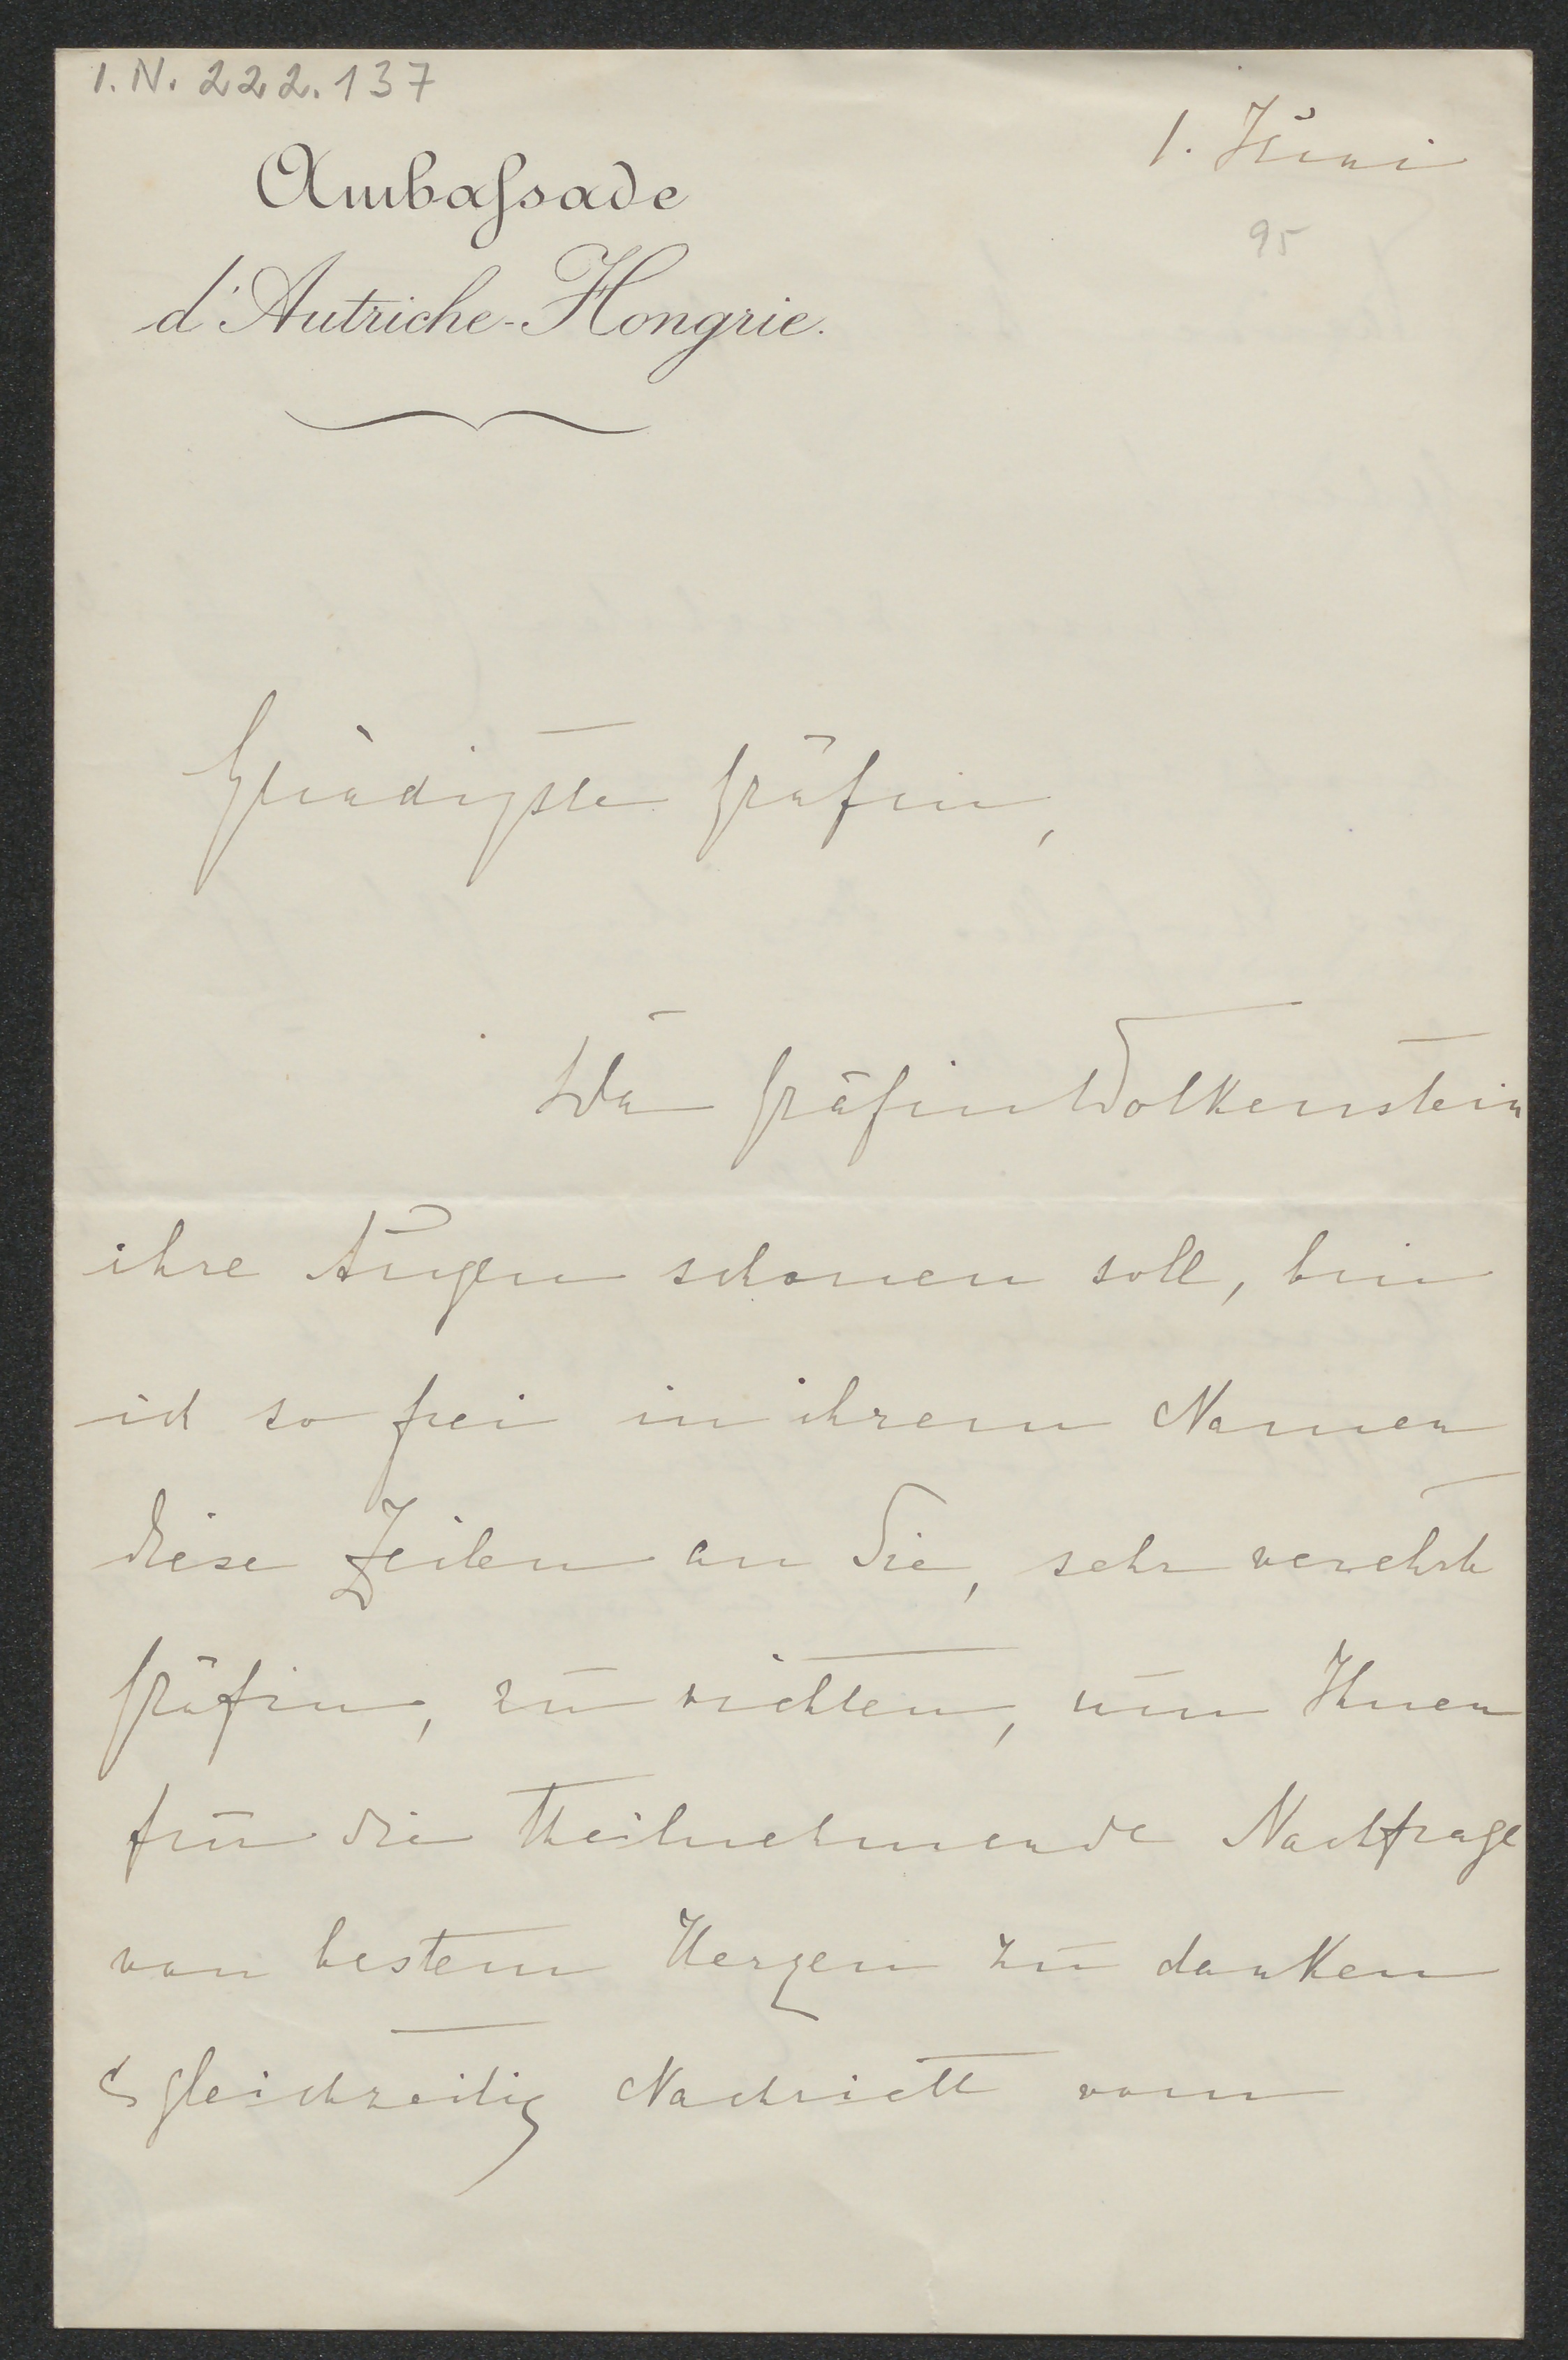 I.N. 222.137
1. Juni
95
Ambassade
d'Autriche-Hongrie.
Gnädigste Gräfin,
Da Gräfin Wolkenstein
ihre Augen schonen soll, bin
ich so frei in ihrem Namen
diese Zeilen an Sie, sehr verehrte
Gräfin, zu richten, um Ihnen
für die theilnehmende Nachfrage
von bestem Herzen zu danken
& gleichzeitig Nachricht vom